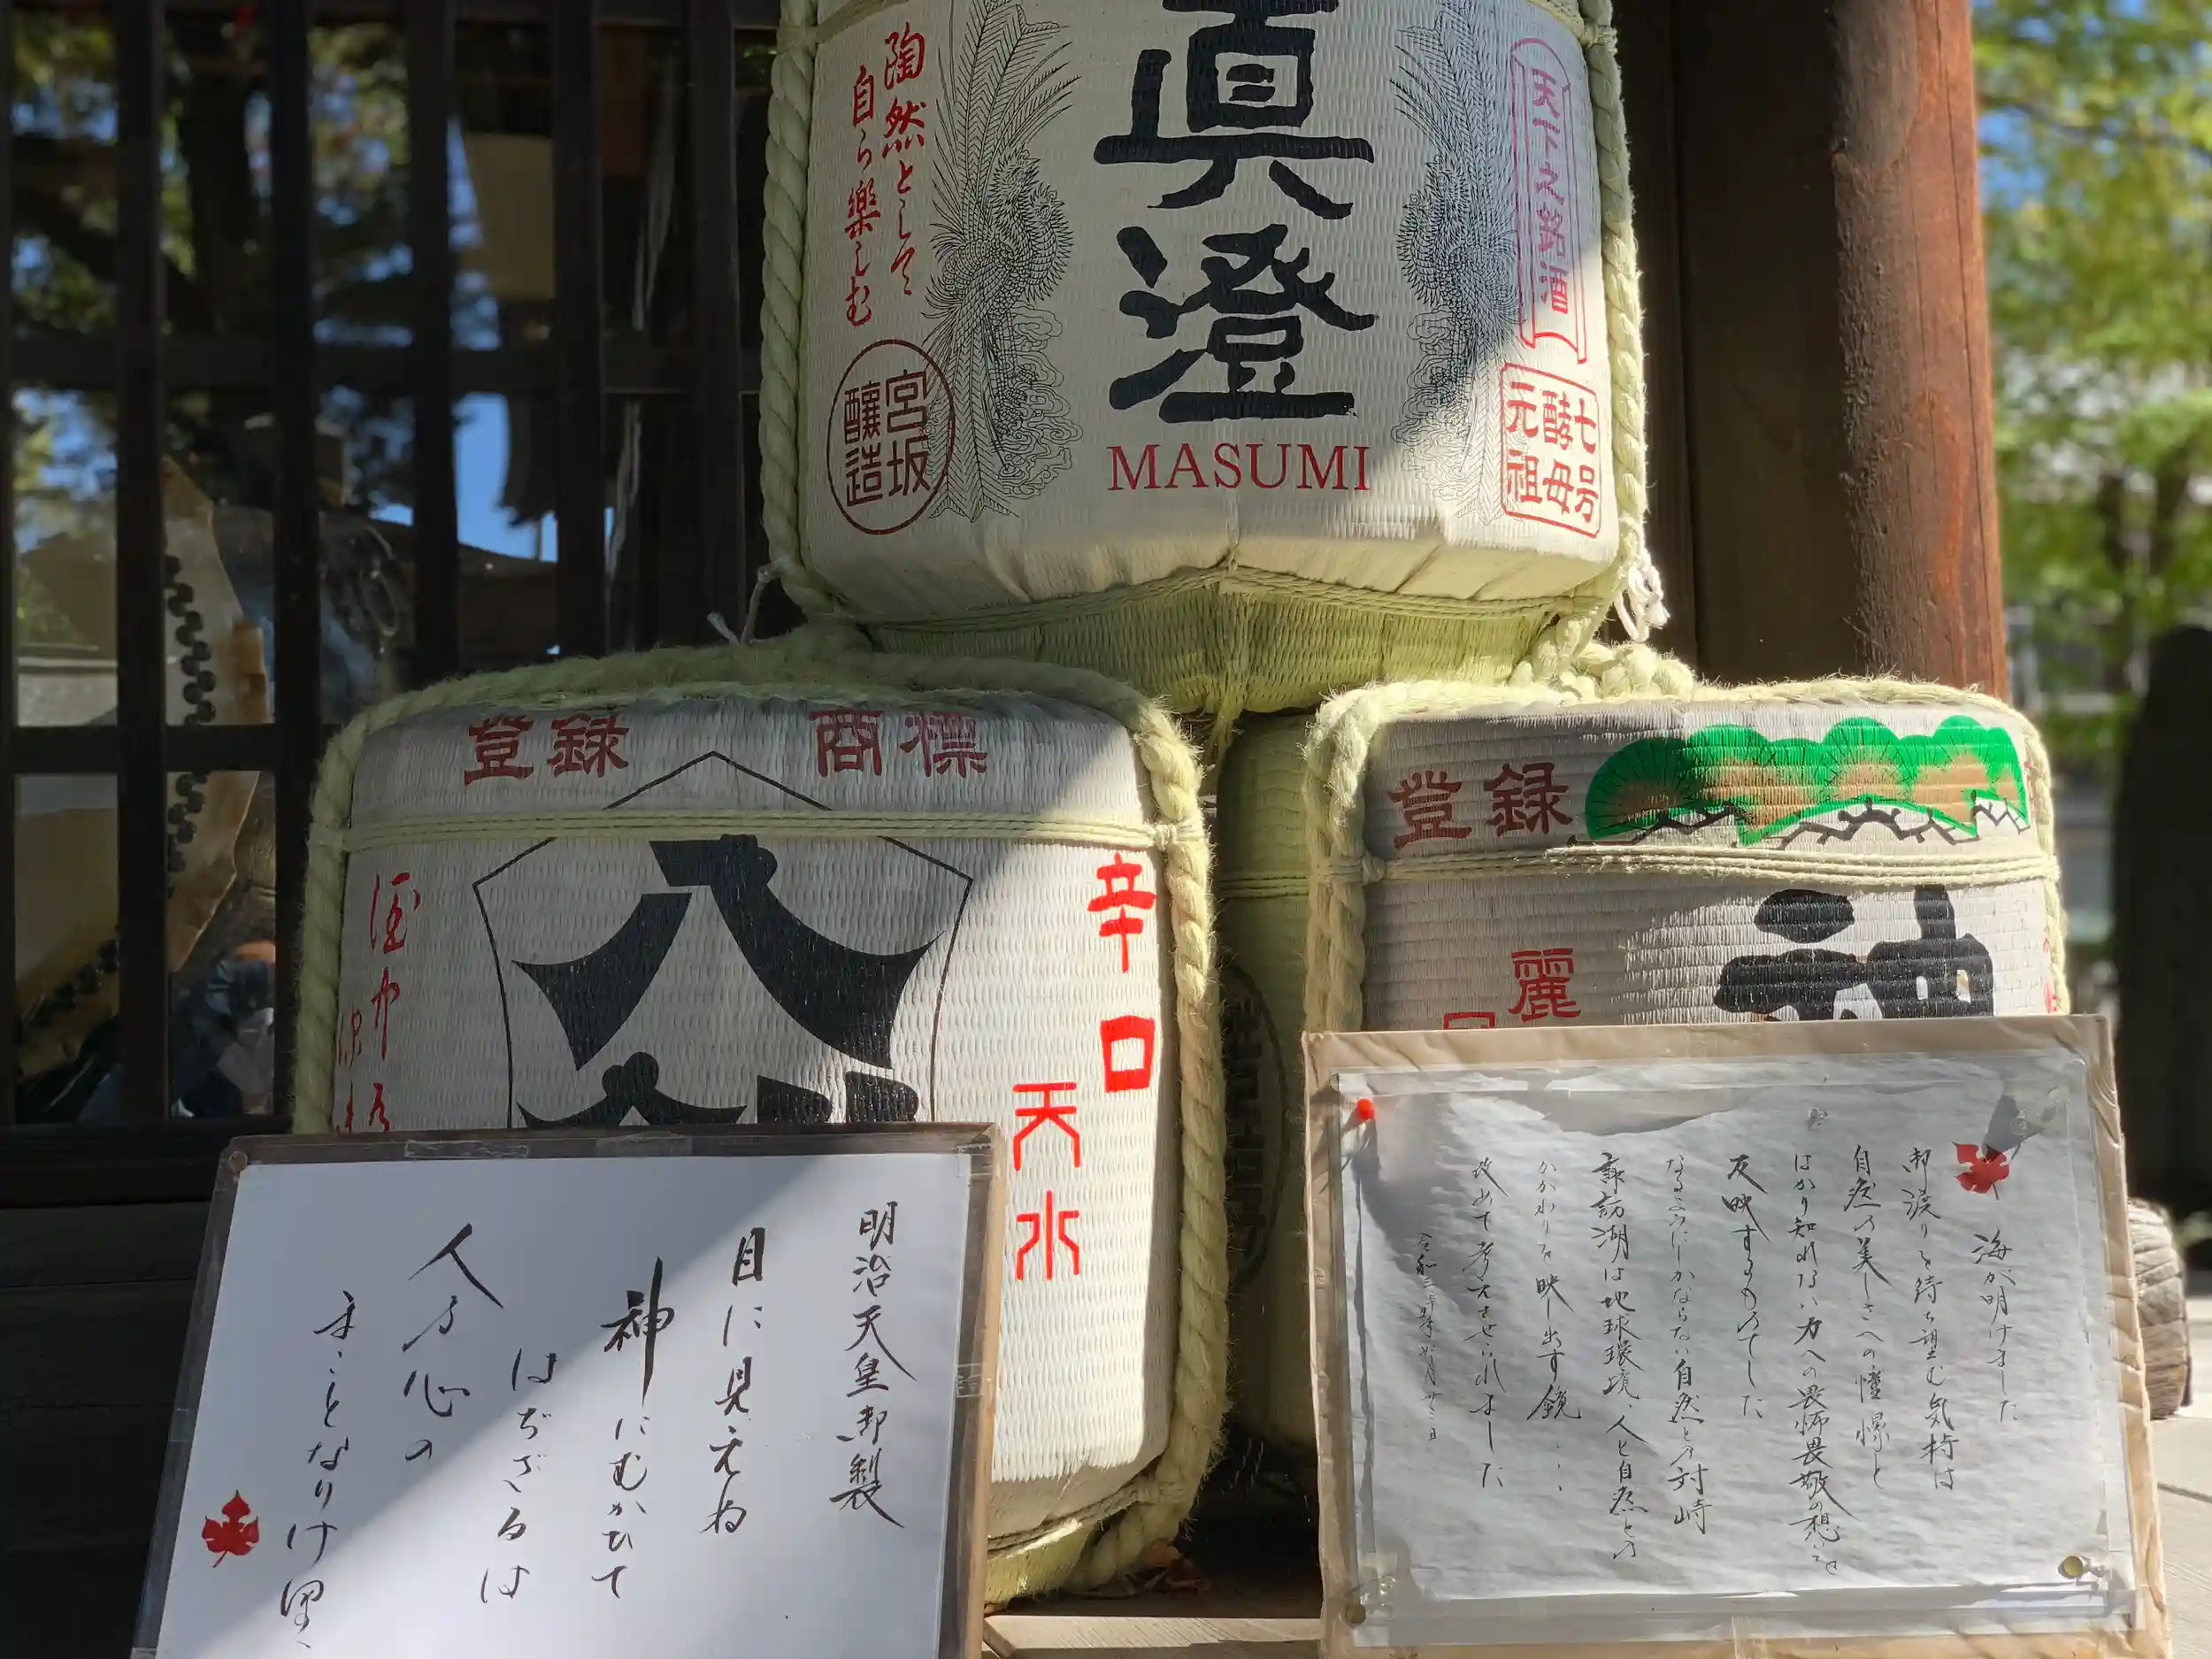 眞澄
MASUMI
陶然として
自ら樂しむ
宮坂
醸造
天下之銘酒
七号
酵母
元祖
登録 商標
辛口
天水
登録
麗
神
明治天皇御製
目に見えね
神にむかひて
はぢざるは
人の心の
まことなりけり
海が明けました
御渡りを待ち望む気持は
自然の美しさへの憧憬と
はかり知れない力への畏怖畏敬の想いを
反映するものでした
諏訪湖は地球環境、人と自然との
かかわりを映し出す鏡・・・
改めて考えさせられました